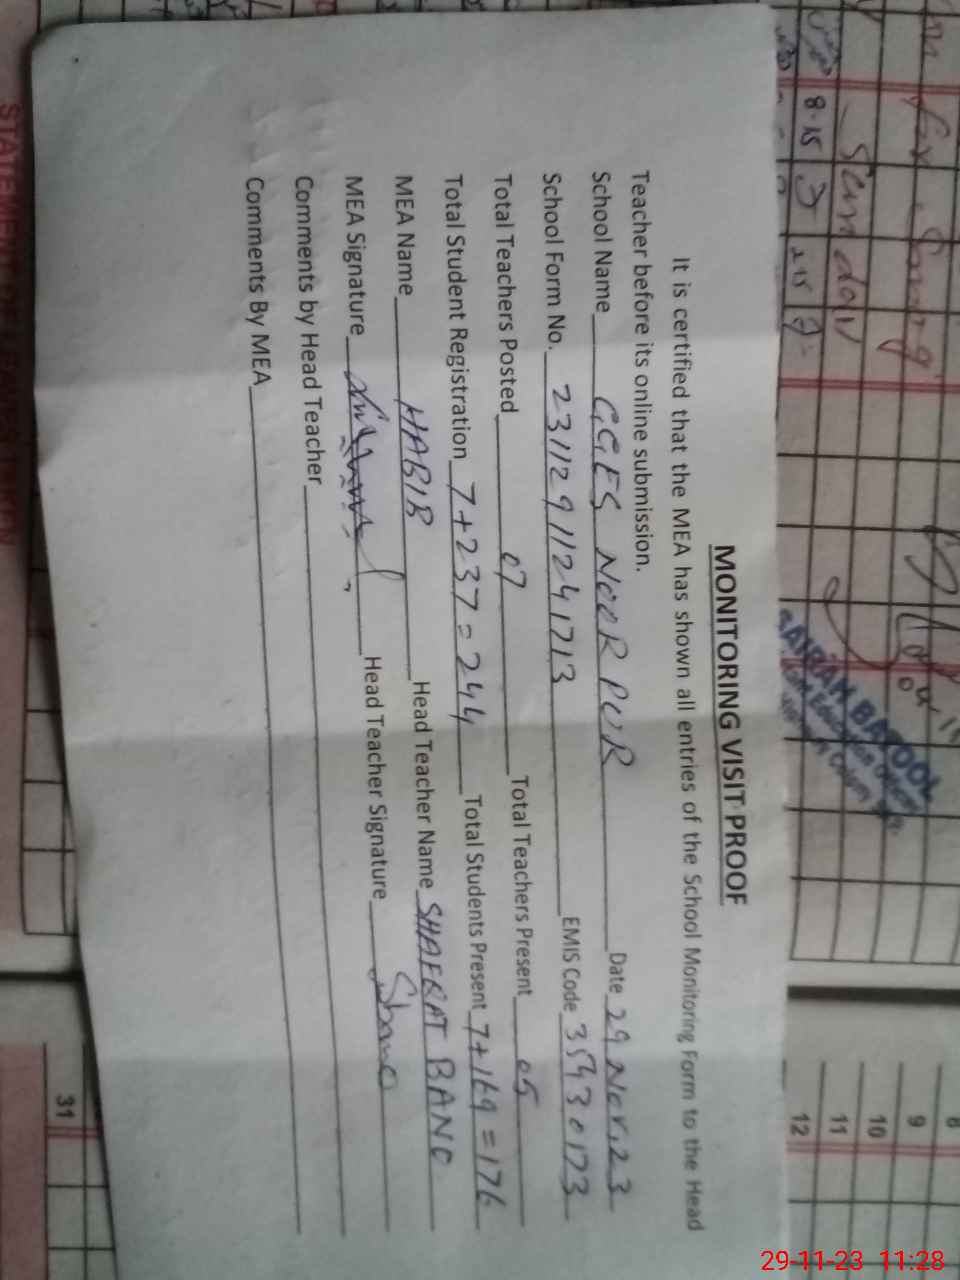 MONITORING VISIT PROOF
It is certified that the MEA has shown all entries of the School Monitoring Form to the Head
Teacher before its online submission.
School Name GGES NOOR PUR Date 29 Nov, 23
School Form No. 23112911241713 EMIS Code 35930173
Total Teachers Posted 07 Total Teachers Present 05
Total Student Registration 7+237=244 Total Students Present 7+169=176
MEA Name HABIB Head Teacher Name SHAFKAT BANO
MEA Signature Head Teacher Signature
Comments by Head Teacher
Comments By MEA
Sunday
8.15 3 2.15
SAIRAH BATOOL
8
9
10
11
12
31
29-11-23 11:28